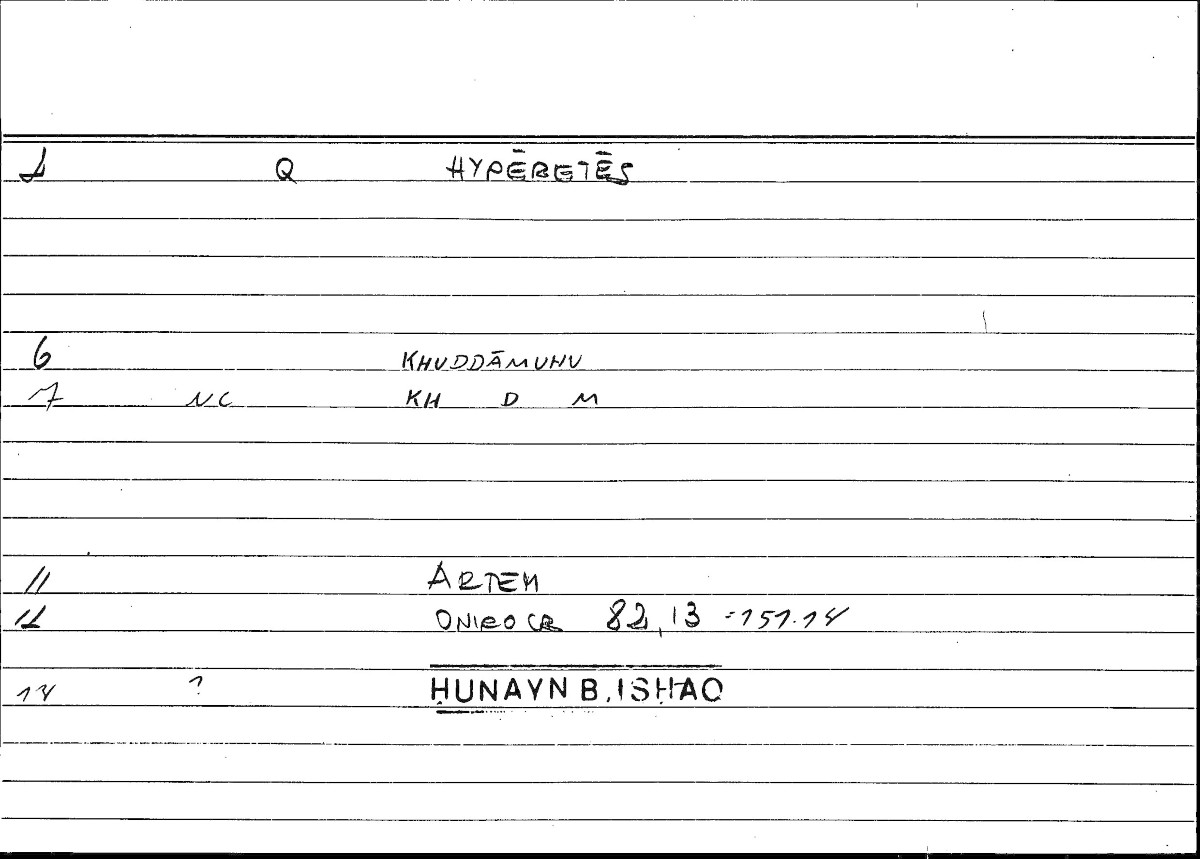 1 Q HYPĒRETĒS
6 KHUDDĀMUHU
7 NC KH D M
11 ARTEM
12 ONIROCR 82,13 = 151.14
14 ? ḤUNAYN B. ISḤAQ